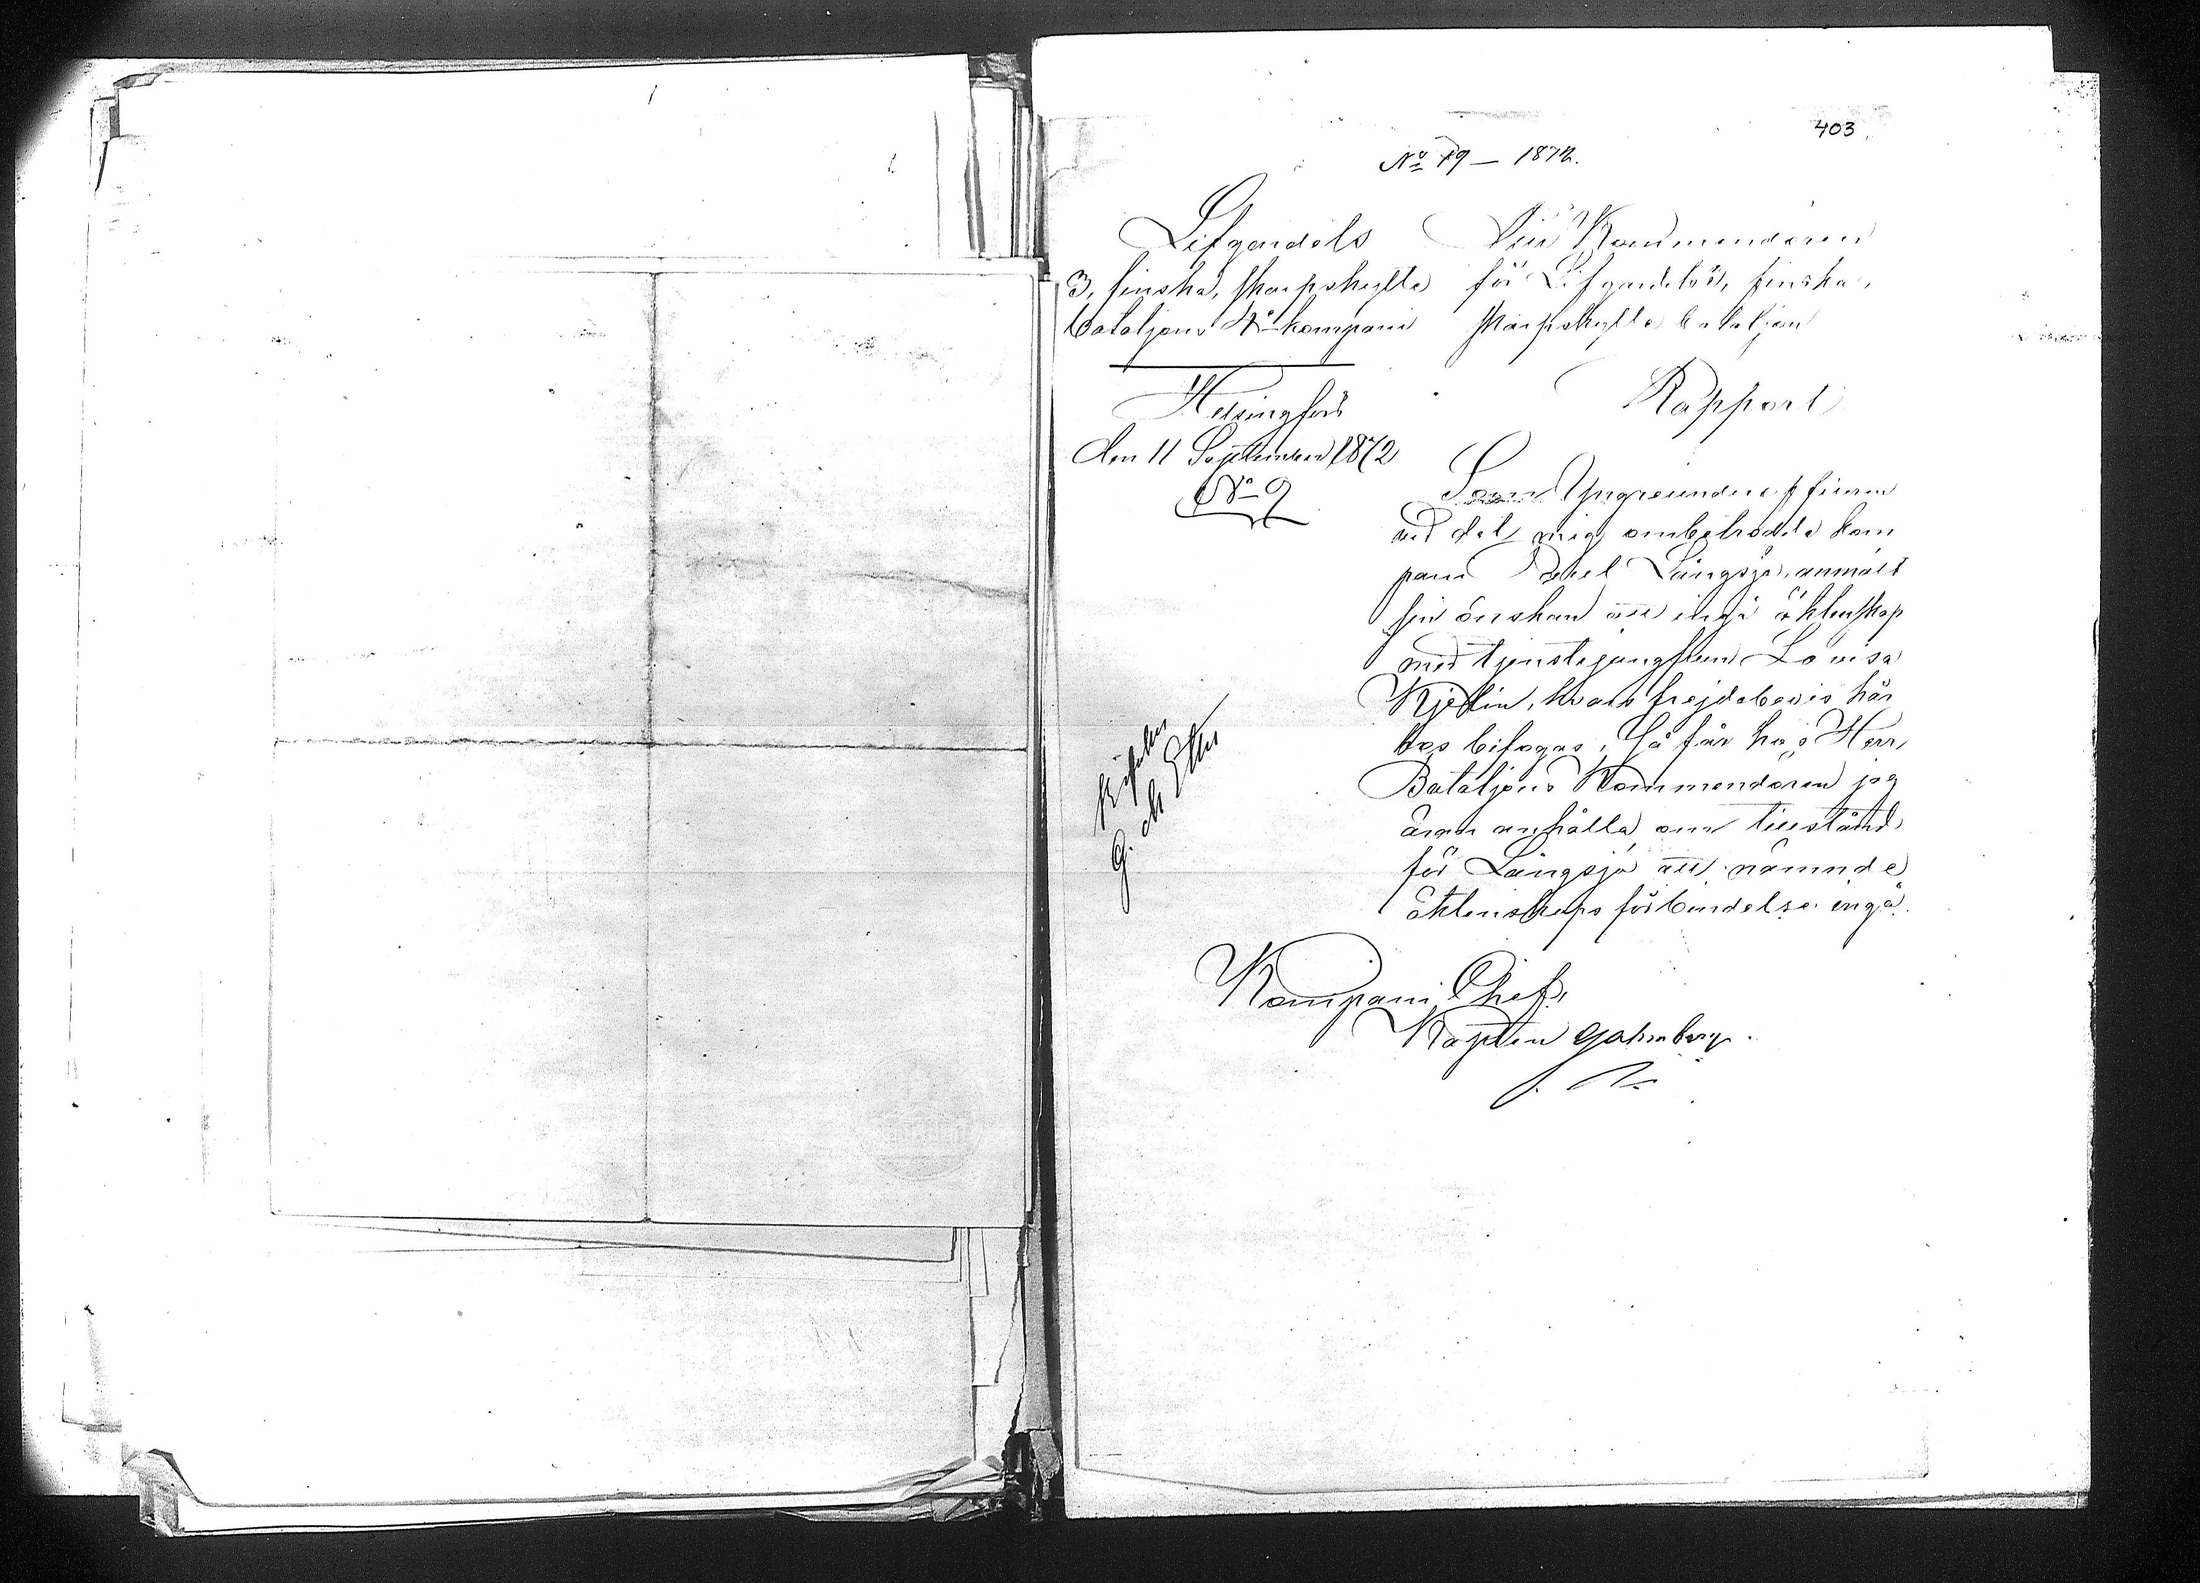 403.
No 79 — 1872.
Lifgardets
3, finska, skarpskytte
bataljons 4de kompani
Helsingfors
den 11 September 1872
No 9
Till Kommendören
för Lifgardets 3, finska,
skarpskytte bataljon
Rapport
Som Yngre underofficeren
vid det mig ombetrodda kom
pani Axel Långsjö, anmält
sin önskan att ingå äktenskap
med tjenstejungfrun Lovisa
Kjellin, hvars frejdebevis här
hos bifogas, Så får hos Herr
Bataljons Kommendören jag
äran anhålla om tillstånd
för Långsjö att nämnde
äktenskaps förbindelse ingå.
Kompani Chef,
Kapten Gahmberg.
Bifalles
G. M. Etter